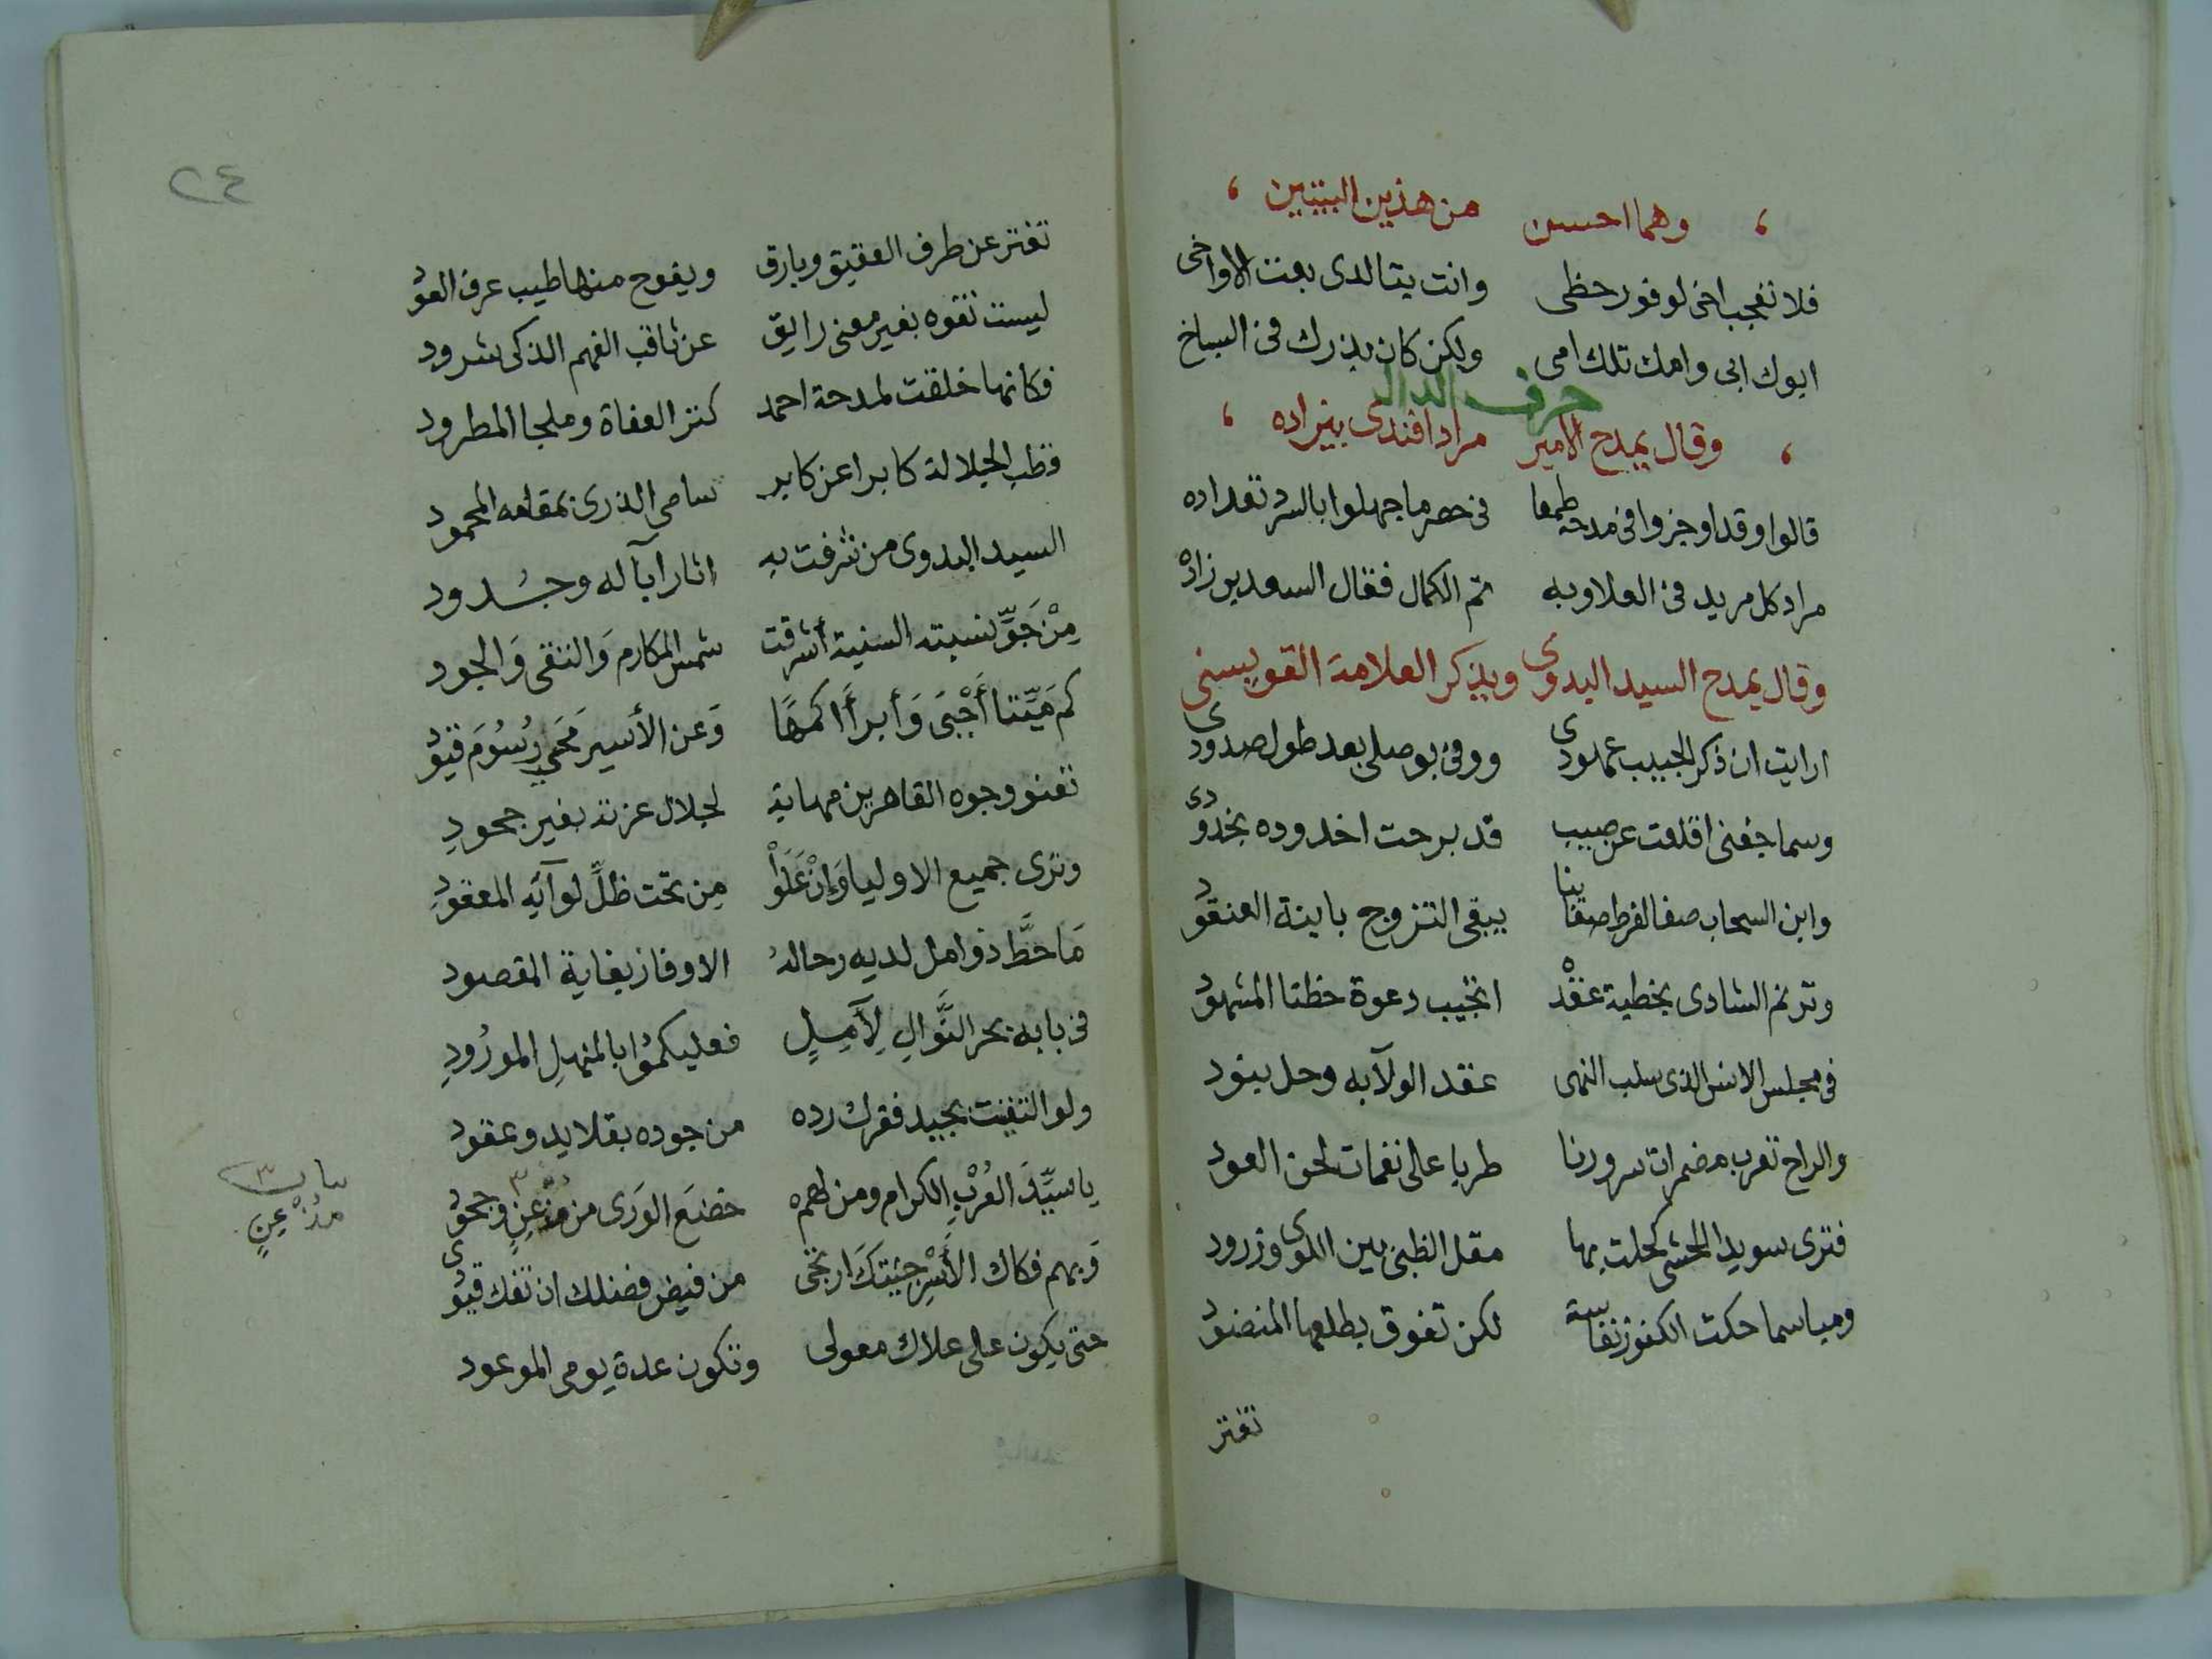 ، وهما احسن من هذين البيتين ،
فلا تعجب اخى لوفور حظى وانت يتا لدى بعت الاواخى
ابوك ابى وامك تلك امى ولكن كان بذرك فى السباخ
حرف الدال
، وقال يمدح الامير مراد افندى بيزاده ،
قالوا وقد اوجزوا فى مدحه طمعا فى حصر ما جهلوا بالسر تعداده
مراد كل مريد فى العلا وبه تم الكمال فقال السعدين زاده
وقال يمدح السيد البدوى ويذكر العلامة القويسنى
ارايت ان ذكر الحبيب عهودى ووفى بوصلى بعد طول صدودى
وسما جفنى اقلعت عن صبيب قد برحت اخدوده بخدودى
وابن السحاب صفا لفرط صقابنا يبقى التزوج باينة العنقود
وترنم الشادى بخطبة عقده اتجيب دعوة حظنا المشهود
فى مجلس الانس الذى سلب النهى عقد الولآبه وحل بنود
والراح تعرب مضمرات سرورنا طربا على نغمات لحن العود
فترى سويد الحشى كحلت بها مقل الظبى بين اللوى وزرود
ومباسما حكت الكنوز نفاسة لكن تفوق بطلعها المنضود
تفتر
٢٤
تفتر عن طرف العقيق وبارق ويفوح منها طيب عرف العود
ليست تفوه بغير معنى رايق عن ثاقب الفهم الذكى شرود
فكانها خلقت لمدحة احمد كنز العفاة وملجا المطرود
قطب الجلالة كابرا عن كابر سامى الذرى بمقامه المحمود
السيد البدوى من شرفت به اثار ابآله وجُدود
مِنْ جَوِّ نسبته السنية أشرقت شمس المكارم وَالتقى وَالجود
كم مَيِّتا أَحْيَى وَأبرأ اكمهًا وَعن الأسير مَحَى رُسُومَ قيود
تعنو وجوه القاهرين مهابة لجلال عزته بغير جحودِ
وترى جميع الاوليا وَإنْ عَلَوْا مِن تحت ظلِّ لوآيِه المعقودِ
مَا حَطَّ ذو امل لديه رحالهُ الا وفاز بغاية المقصود
فى بابه بحر النَّوالِ لِآمِلٍ فعليكموُا بالمنهلِ المورُودِ
ولو التفت بجيد فقرك رده من جوده بقلايد وعقود
يا سيِّدَ العُرْبِ الكرام ومن لهم خضعَ الوَرَى من مذعِنٍ وجحود
وَبهم فكاك الأَسْرِ جئيتكَ ارتجى من فيض فضلك ان تفك قيودى
حتى يكون على علاك معولى وتكون عدة يومى الموعود
بيان ٣
مذْعِنٍ